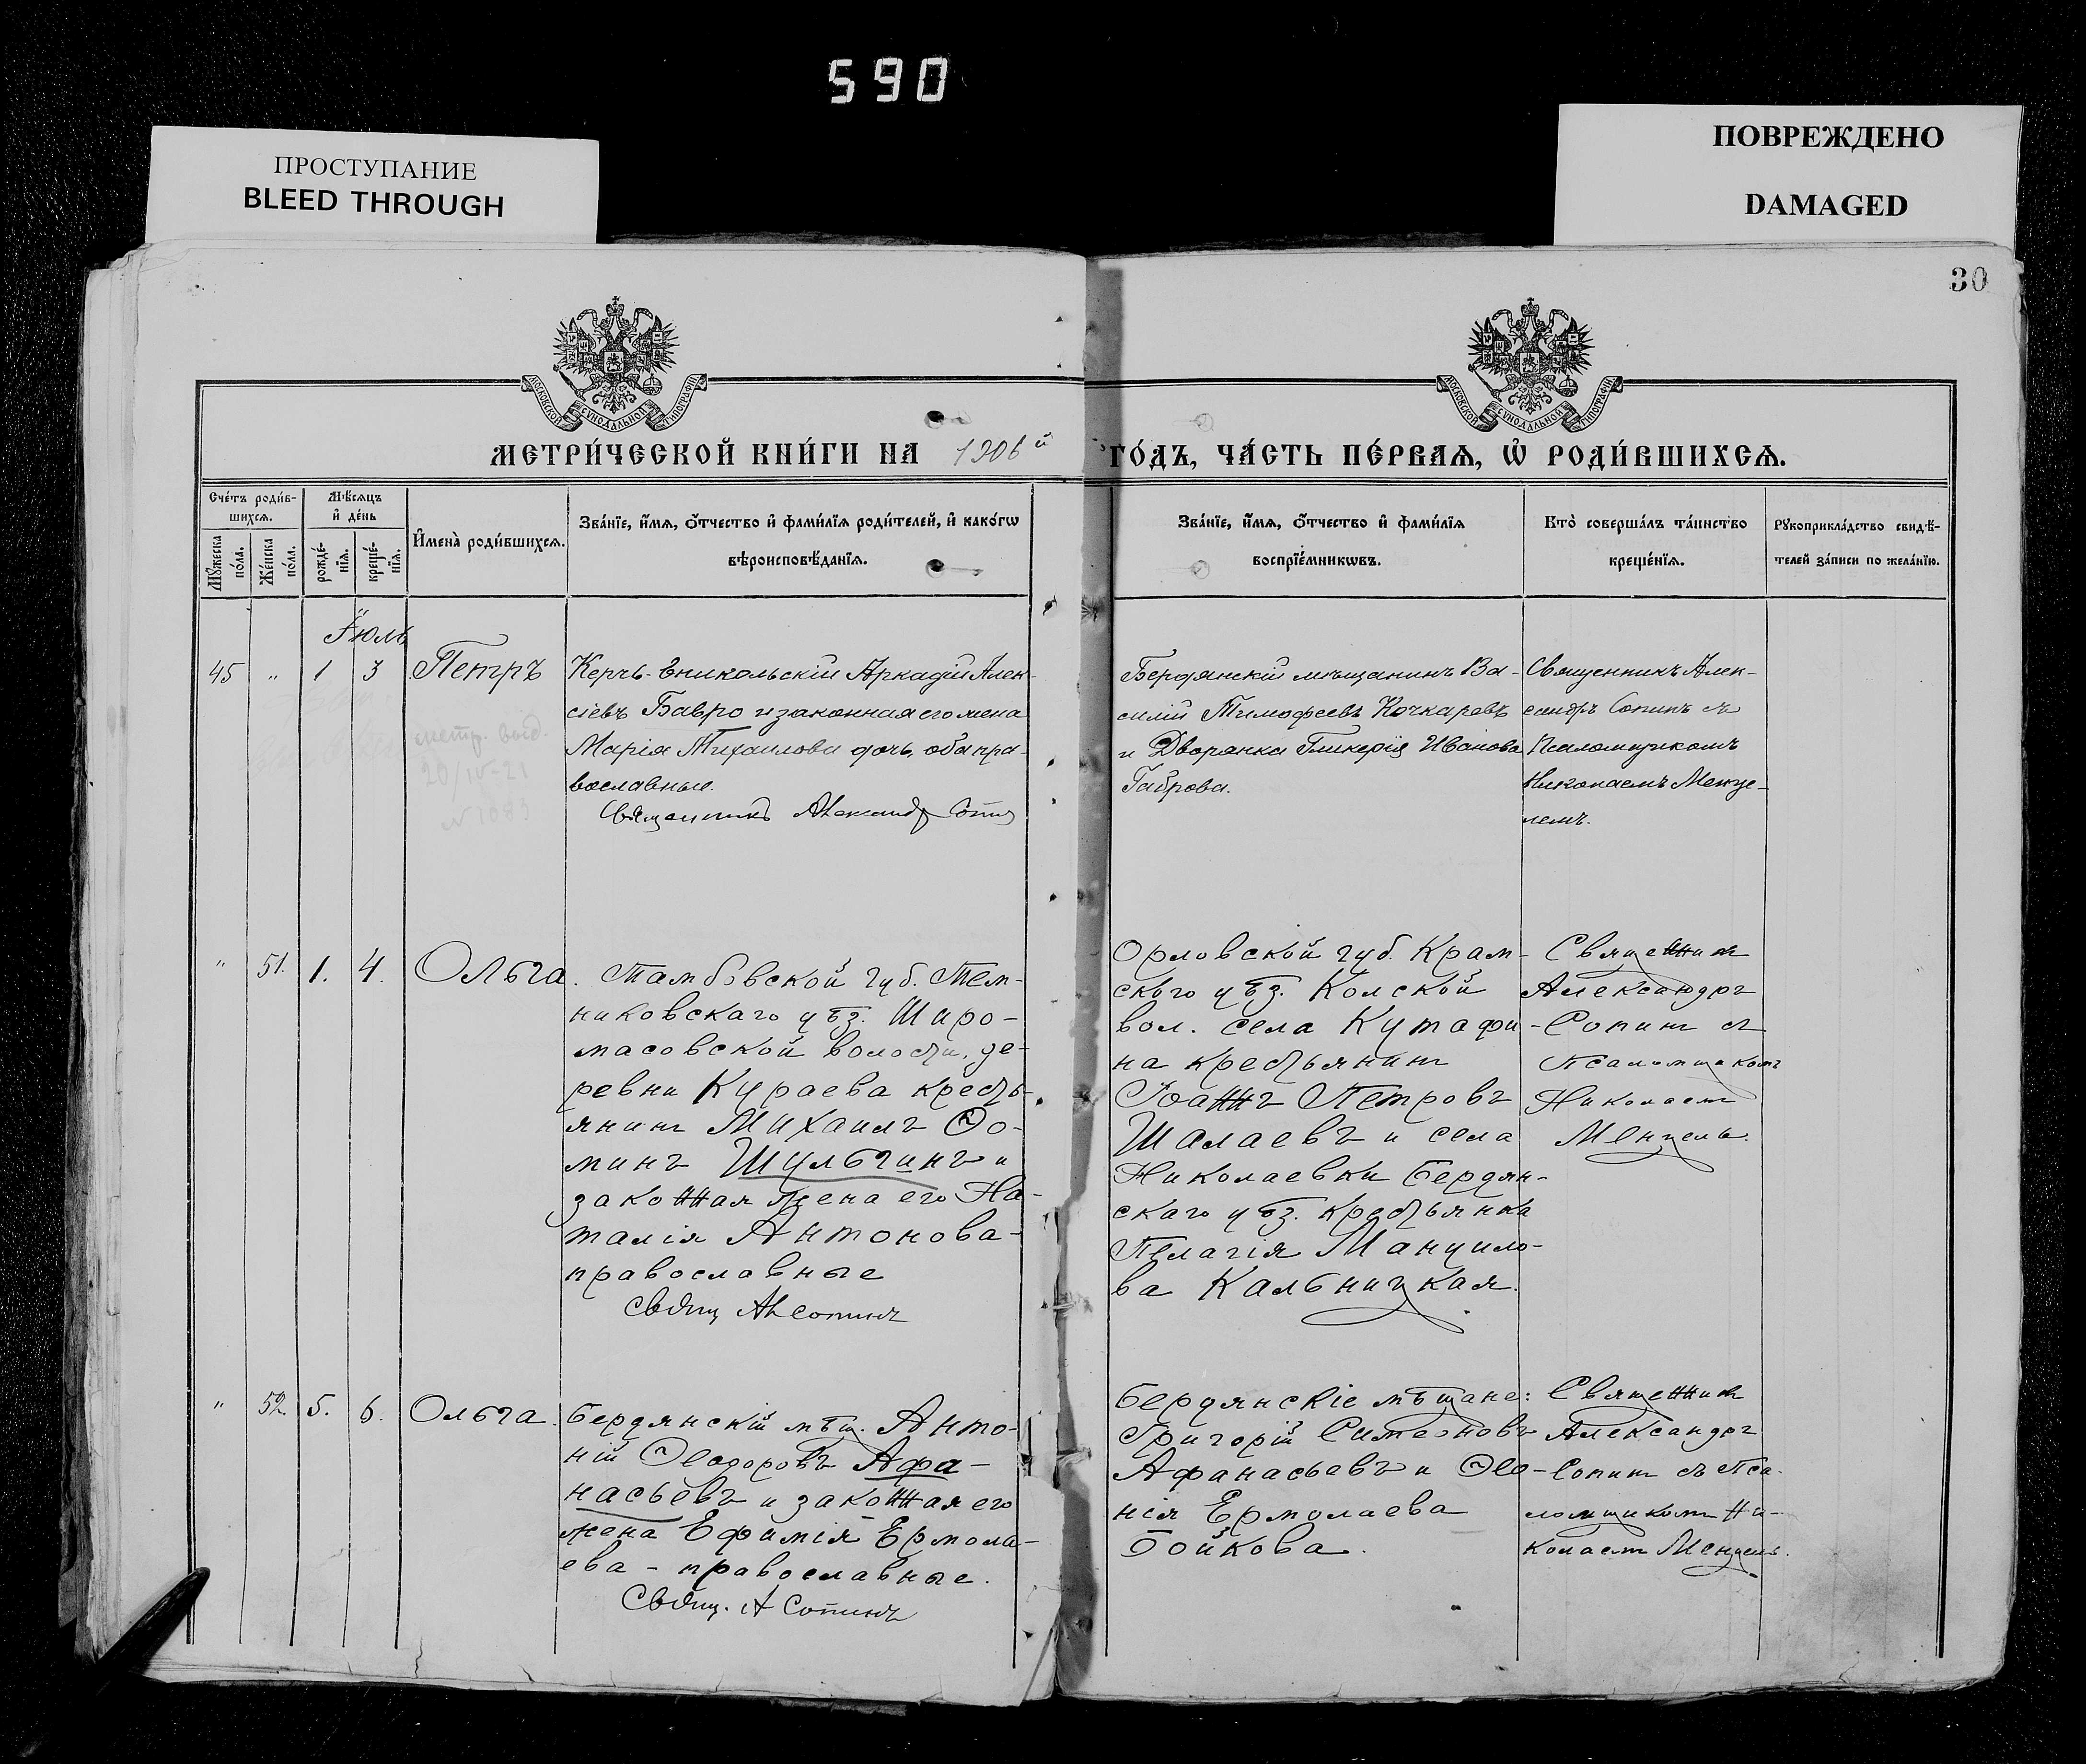 590
ПРОСТУПАНИЕ
BLEED THROUGH
ПОВРЕЖДЕНО
DAMAGED
30
МОСКОВСКОЙ СУНОДАЛЬНОЙ ТИПОГРАФІИ
МОСКОВСКОЙ СУНОДАЛЬНОЙ ТИПОГРАФІИ
МЕТРИ́ЧЕСКОЙ КНИ́ГИ НА 1906й
ГО́ДЪ, ЧА́СТЬ ПЕ́РВАѦ, Ѡ҆ РОДИ́ВШИХСѦ.
Сче́тъ роди́в-
шихсѧ.
Мѣ́сѧцъ
и҆ де́нь
Мꙋ́жеска по́ла.
Же́нска по́ла.
рожде́-
нїѧ.
креще́-
нїѧ.
И҆мена̀ роди́вшихсѧ.
Зва́нїе, и҆́мѧ, ѻ҆́тчество и҆ фами́лїѧ роди́телей, и҆ како́гѡ
вѣроисповѣ́данїѧ.
Зва́нїе, и҆́мѧ, ѻ҆́тчество и҆ фами́лїѧ
воспрїе́мникѡвъ.
Кто̀ соверша́лъ та́инство
креще́нїѧ.
Рꙋкоприкла́дство свидѣ́-
телей за́писи по жела́нїю.
Іюль
45 " 1 3 Петръ
Керчь-Еникольскій Аркадій Алек-
сіевъ Бавро и законная его жена
Марія Михаилова дочь, оба пра-
вославные.
Священникъ Александръ Сопинъ
метр. выд.
20/IV-21
N 1083
Бердянскій мѣщанинъ Ва-
силій Тимофеевъ Кочкаревъ
и Дворянка Гликерія Иванова
Габрова.
Священникъ Алек-
сандръ Сопинъ съ
Псаломщикомъ
Николаемъ Менце-
лемъ.
" 51. 1. 4. Ольга.
Тамбовской губ. Тем-
никовскаго уѣз. Широ-
масовской волости, де-
ревни Кураева кресть-
янинъ Михаилъ Ѳо-
минъ Шульгинъ и
законная жена его На-
талія Антонова-
православные
Свящ Ал Сопинъ
Орловской губ. Кром-
скаго уѣз.
вол. села Кутафи-
на крестьянинъ
Іоаннъ Петровъ
Шалаевъ и села
Николаевки Бердян-
скаго уѣз. крестьянка
Пелагія Мануило-
ва Кальницкая.
Священникъ
Александръ
Сопинъ съ
Псаломщикомъ
Николаемъ
Менцель.
" 52. 5. 6. Ольга.
Бердянскій мѣщ. Анто-
ній Ѳеодоровъ Афа-
насьевъ и законная его
жена Ефимія Ермола-
ева - православные.
Свящ. А Сопинъ
Бердянскіе мѣщане:
Григорій Симеоновъ
Афанасьевъ и Ѳео-
нія Ермолаева
Бойкова.
Священникъ
Александръ
Сопинъ съ Пса-
ломщикомъ Ни-
колаемъ Менцель.